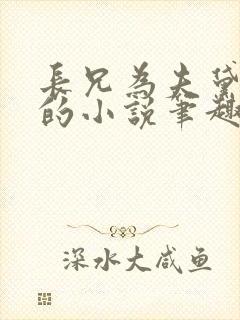 長兄為夫黛
的小說筆趣
深水大咸鱼